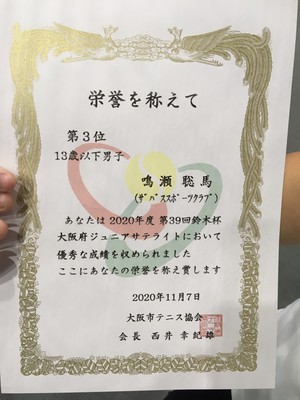 栄誉を称えて
第3位
13歳以下男子
鳴瀬聡馬
(ザ・バススポーツクラブ)
あなたは2020年度第39回鈴木杯
大阪府ジュニアサテライトにおいて
優秀な成績を収められました
ここにあなたの栄誉を称え賞します
2020年11月7日
大阪市テニス協会
会長 西井幸紀雄